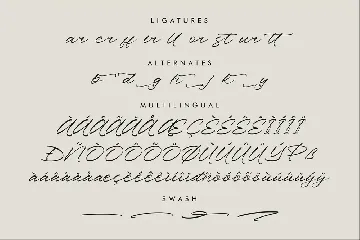 LIGATURES
ar cr ff er ll or st ur tt
ALTERNATES
MULTILINGUAL
ÀÁÂÃÄÅÆÇÈÉÊËÌÍÎÏ
ÐÑÒÓÔÕÖØÙÚÛÜÝÞß
àáâãäåæçèéêëìíîïðñòóôõöùúûüýÿ
SWASH